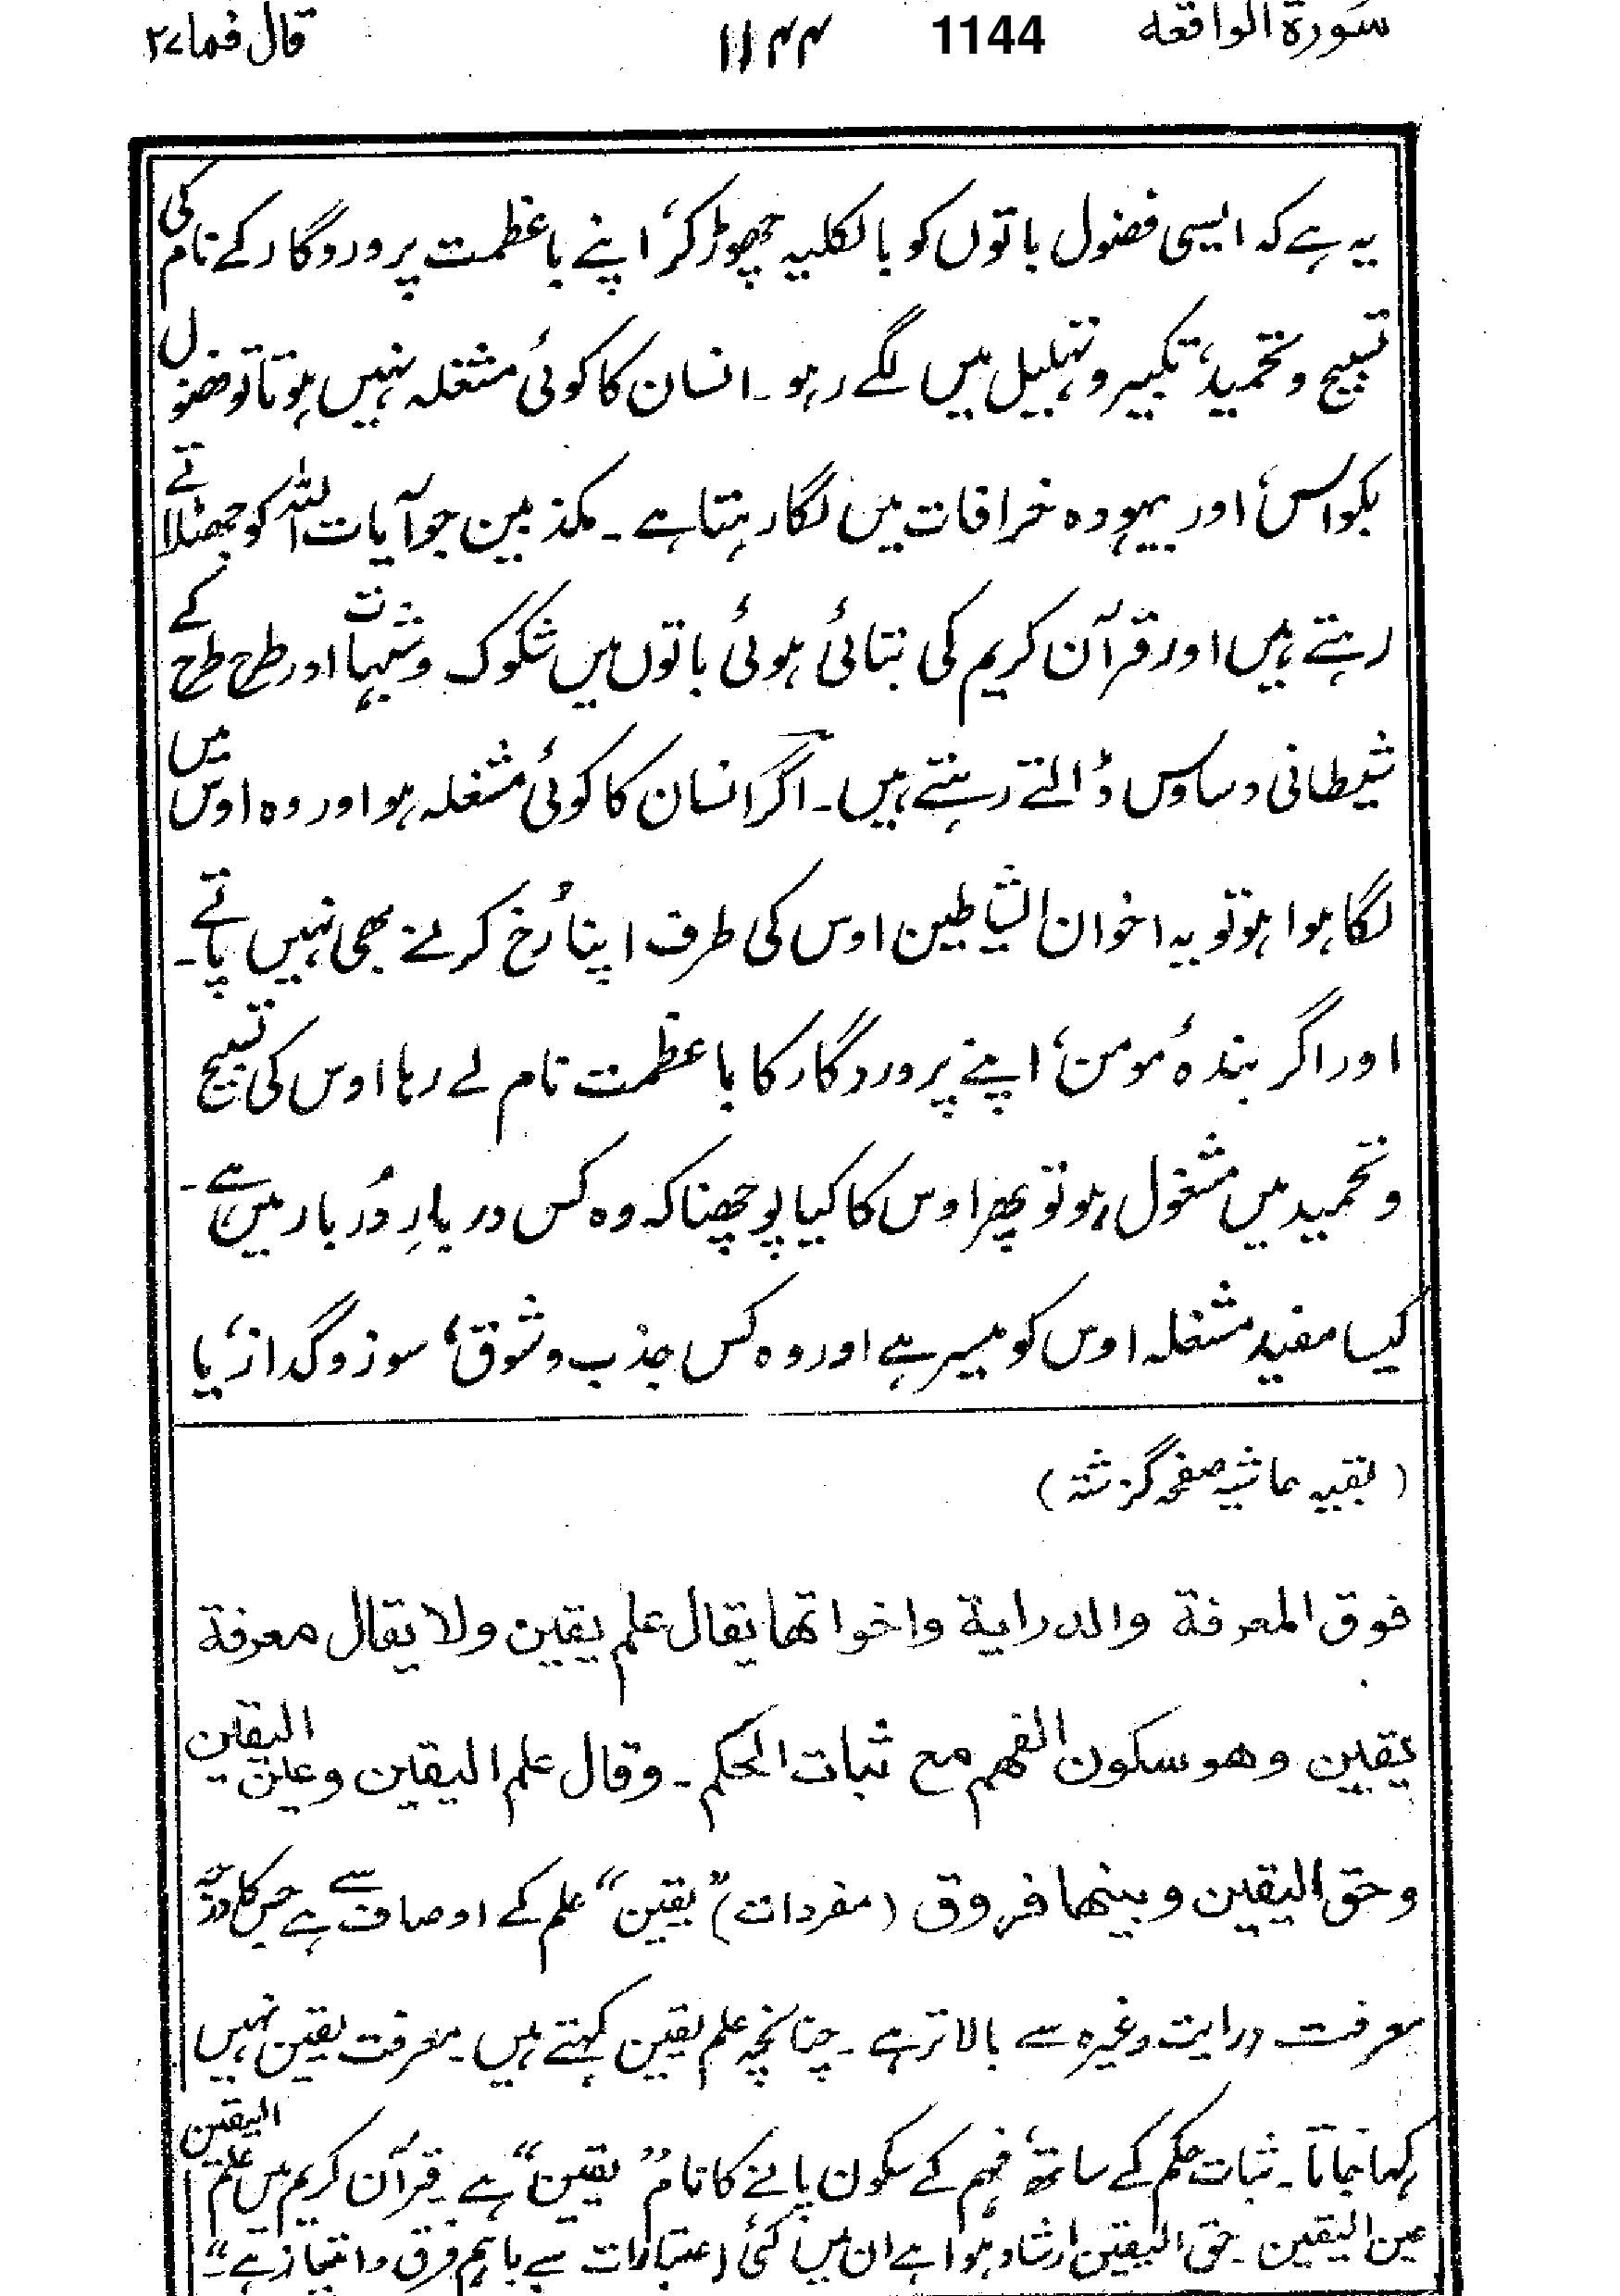 سورة الواقعه 1144 ۱۱۴۴ قال فما ۲۷
یہ ہے کہ ایسی فضول باتوں کو بالکلیہ چھوڑ کر، اپنے باعظمت پروردگار کے نام کی
تسبیح و تحمید، تکبیر و تہلیل میں لگے رہو۔ انسان کا کوئی مشغلہ نہیں ہوتا تو فضول
بکواس، اور بیہودہ خرافات میں لگا رہتا ہے۔ مکذبین جو آیات اللہ کو جھٹلاتے
رہتے ہیں اور قرآن کریم کی بتائی ہوئی باتوں میں شکوک و شبہات اور طرح طرح کے
شیطانی وساوس ڈالتے رہتے ہیں۔ اگر انسان کا کوئی مشغلہ ہو اور وہ اوس میں
لگا ہوا ہو تو یہ اخوان الشیاطین اوس کی طرف اپنا رُخ کرنے بھی نہیں پاتے۔
اور اگر بندۂ مومن، اپنے پروردگار کا باعظمت نام لے رہا اوس کی تسبیح
و تحمید میں مشغول ہو تو پھر اوس کا کیا پوچھنا کہ وہ کس دربارِ دُربار میں ہے۔
کیسا مفید مشغلہ اوس کو میسر ہے اور وہ کس جذب و شوق، سوز و گداز، یا
(بقیہ حاشیہ صفحہ گزشتہ)
فوق المعرفة والدراية واخواتها يقال علم يقين ولا يقال معرفة
يقين وهو سكون الفهم مع ثبات الحكم۔ وقال علم اليقين وعين اليقين
وحق اليقين وبينهما فروق (مفردات) "یقین" علم کے اوصاف سے ہے جس کا درجہ
معرفت درایت وغیرہ سے بالاتر ہے۔ چنانچہ علم یقین کہتے ہیں۔ معرفت یقین نہیں
کہا جاتا۔ ثبات حکم کے ساتھ، فہم کے سکون پانے کا نام "یقین" ہے۔ قرآن کریم میں علم الیقین
عین الیقین۔ حق الیقین ارشاد ہوا ہے ان میں کئی اعتبارات سے باہم فرق و امتیاز ہے"۔